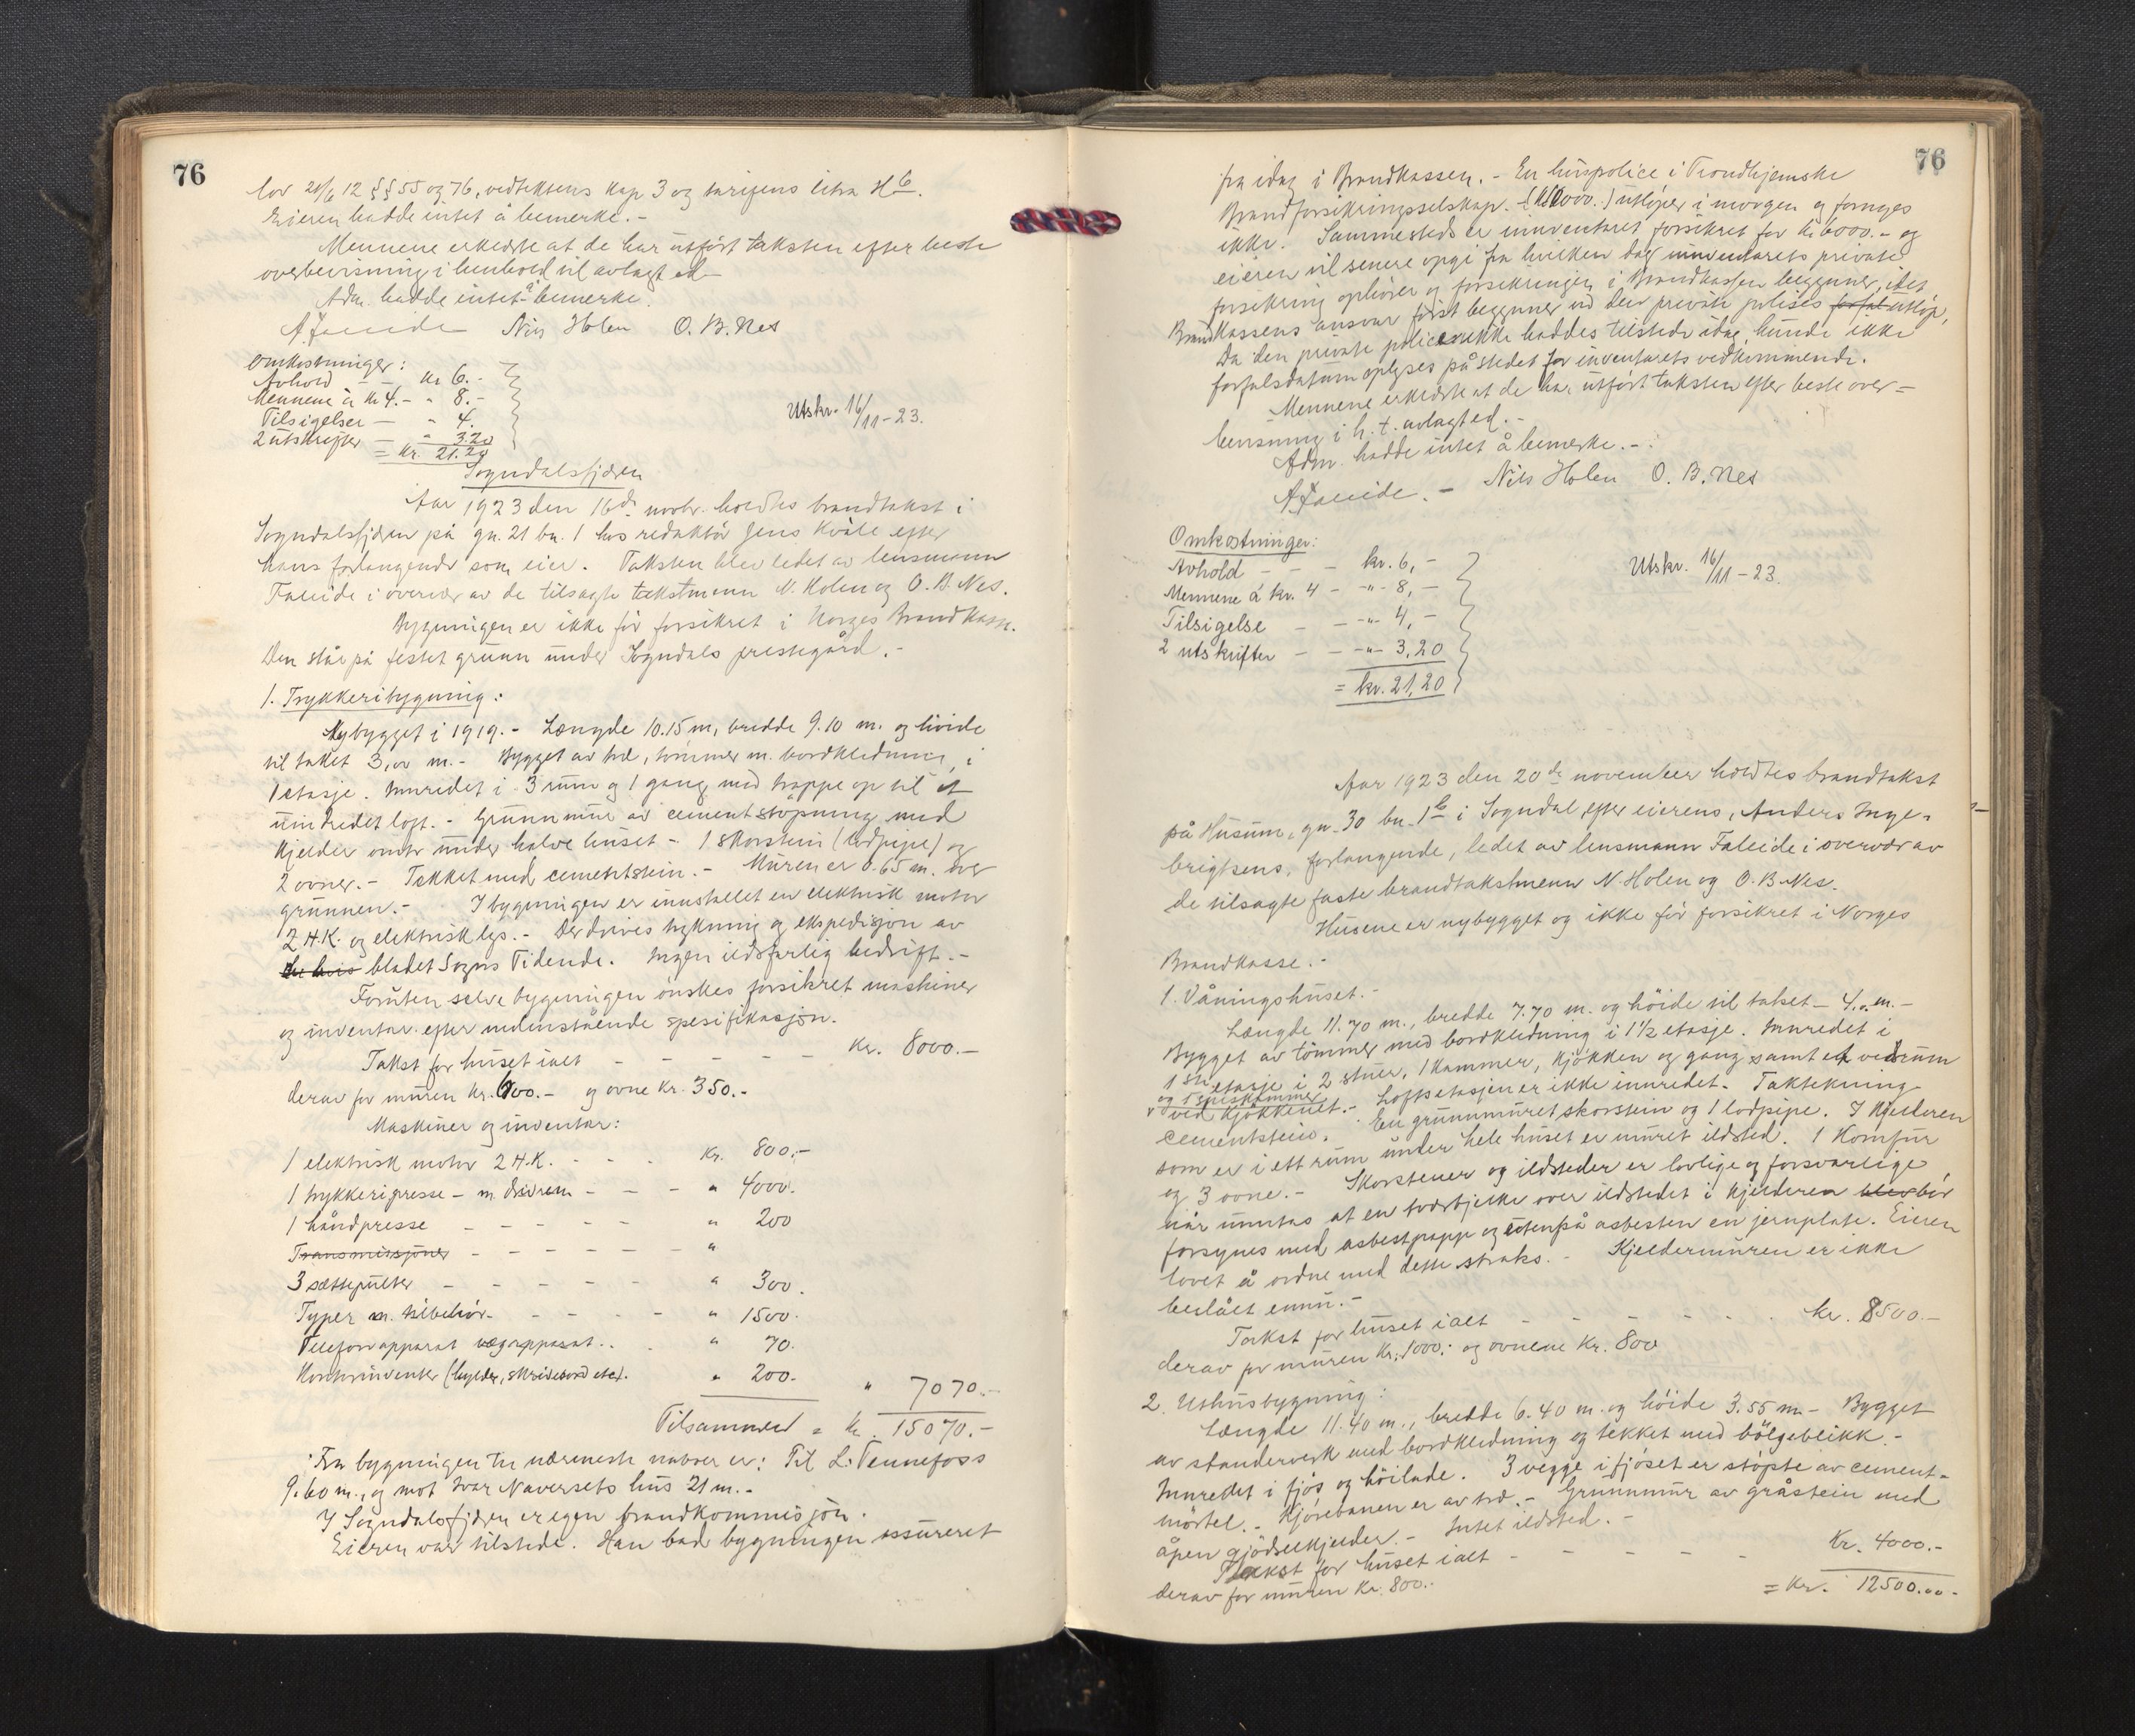 76
lov 21/6 12 §§ 55 og 76, vedtektens kap 3 og tarifens litra H b.
Eieren hadde intet å bemerke.-
Mennene erklærte at de har utført taksten efter beste
overbevisning i henhold til avlagt ed.-
Adm. hadde intet å bemerke.
A. Faleide Nils Holen O. B. Nes
Omkostninger:
Avhold - - kr 6.-
Mennene à kr 4.- " 8.-
Tilsigelser - " 4.
2 utskrifter - " 3.20
= kr. 21.20
Utskr. 16/11-23.
Sogndalsfjæren
Aar 1923 den 16de novbr. holdtes brandtakst i
Sogndalsfjæren på gn. 21 bn. 1 hos redaktör Jens Kvåle efter
hans forlangende som eier. Taksten blev ledet av lensmann
Faleide i overvær av de tilsagte takstmenn N. Holen og O. B. Nes.
Bygningen er ikke för forsikret i Norges Brandkasse.
Den står på festet grunn under Sogndals prestegård.-
1. Trykkeribygning:
Nybygget i 1919.- Længde 10.15 m, bredde 9.10 m. og höide
til taket 3,00 m.- Bygget av træ, tömmer m. bordkledning, i
1 etasje. Innredet i 3 rum og 1 gang med trappe op til et
uinnredet loft.- Grunnmur av cementstöpning med
kjelder omtr under halve huset - 1 skorstein (lodpipe) og
2 ovner.- Tekket med cementstein.- Muren er 0.65 m. over
grunnen.- I bygningen er innstallet en elektrisk motor
2 H.K. og elektrisk lys.- Der drives trykning og ekspedisjon av
bladet Sogns Tidende. Ingen ildsfarlig bedrift.-
Foruten selve bygningen önskes forsikret maskiner
og inventar efter nedenstående spesifikasjon.
Takst for huset ialt - - - - - kr. 8000.-
derav for muren kr. 600.- og ovne kr. 350.-
Maskiner og inventar:
1 elektrisk motor 2 H.K. - - - kr. 800.-
1 trykkeripresse - m drivrem - - - " 4000.
1 håndpresse - - - - - " 200
Transmissjoner - - - - - - "
3 sættepulter - - - - - " 300.
Typer m. tilbehör - - - - - " 1500.
Telefonapparat vægapparat.. . " 70.
Kontorinventar (hylder, skrivebord etc). " 200. " 7070.-
Tilsammen = kr. 15070.-
Fra bygningen til nærmeste naboer er: Til L. Tennefoss
9.60 m., og mot Ivar Naversets hus 21 m.-
I Sogndalsfjæren er egen brandkommisjon.
Eieren var tilstede. Han bad bygningen assureret
76
fra idag i Brandkassen.- En huspolice i Trondhjemske
Brandforsikringsselskap utlöper i morgen og fornyes
ikke. Sammesteds er innventaret forsikret for kr 6000.- og
eieren vil senere opgi fra hvilken dag innventarets private
forsikring ophörer og forsikringen i Brandkassen begynner, idet
Brandkassens ansvar först begynner ved den private polises utlöp,
Da den private police ikke haddes tilstede idag, kunde ikke
forfalsdatum oplyses på stedet for inventarets vedkommende.
Mennene erklærte at de har utført taksten efter beste over-
bevisning i h. t. avlagt ed.-
Adm. hadde intet å bemerke.-
A. Faleide.- Nils Holen O. B. Nes
Omkostninger:
Avhold - - - kr. 6,-
Mennene à kr. 4 - -"- 8,-
Tilsigelse - - -"- 4,-
2 utskrifter - - -"- 3,20
= kr. 21,20
Utskr. 16/11-23.
Aar 1923 den 20de november holdtes brandtakst
på Husum, gn. 30 bn. 1b i Sogndal, efter eierens, Anders Inge-
brigtsens, forlangende, ledet av lensmann Faleide i overvær av
de tilsagte faste brandtakstmenn N. Holen og O. B. Nes.
Husene er nybygget og ikke för forsikret i Norges
Brandkasse.-
1. Våningshuset.-
Længde 11.70 m., bredde 7.70 m. og höide til taket - 4.00 m.-
Bygget av tömmer med bordkledning i 1½ etasje. Innredet i
1ste etasje i 2 stuer, 1 kammer, kjökken og gang samt et vedrum
og 1 spiskammer
ved kjökkenet.- Loftsetasjen er ikke innredet. Taktekning
cementstein. En grunnmuret skorstein og 1 lodpipe. I kjelderen
som er i ett rum under hele huset er muret ildsted. 1 Komfur
og 3 ovne.- Skorstener og ildsteder er lovlige og forsvarlige
når unntas at en tverbjelke over ildstedet i kjelderen blev bör
forsynes med asbestpapp og utenpå asbesten en jernplate. Eieren
lovet å ordne med dette straks.- Kjeldermuren er ikke
beslået ennu.-
Takst for huset ialt - - - - - kr. 8500.-
derav for muren kr. 1000,- og ovnene kr. 800
2. Uthusbygning:
Længde 11.40 m., bredde 6.40 m. og höide 3.55 m.- Bygget
av standerverk med bordkledning og tekket med bölgeblikk.-
Innredet i fjös og höilade. 3 vegge i fjöset er stöpte av cement-
mörtel.- Kjörebanen er av træ.- Grunnmur av gråstein med
åpen gjödselkjelder.- Intet ildsted.-
Takst for huset ialt - - - - - kr. 4000.-
derav for muren kr. 800.-
= kr. 12500.00.-